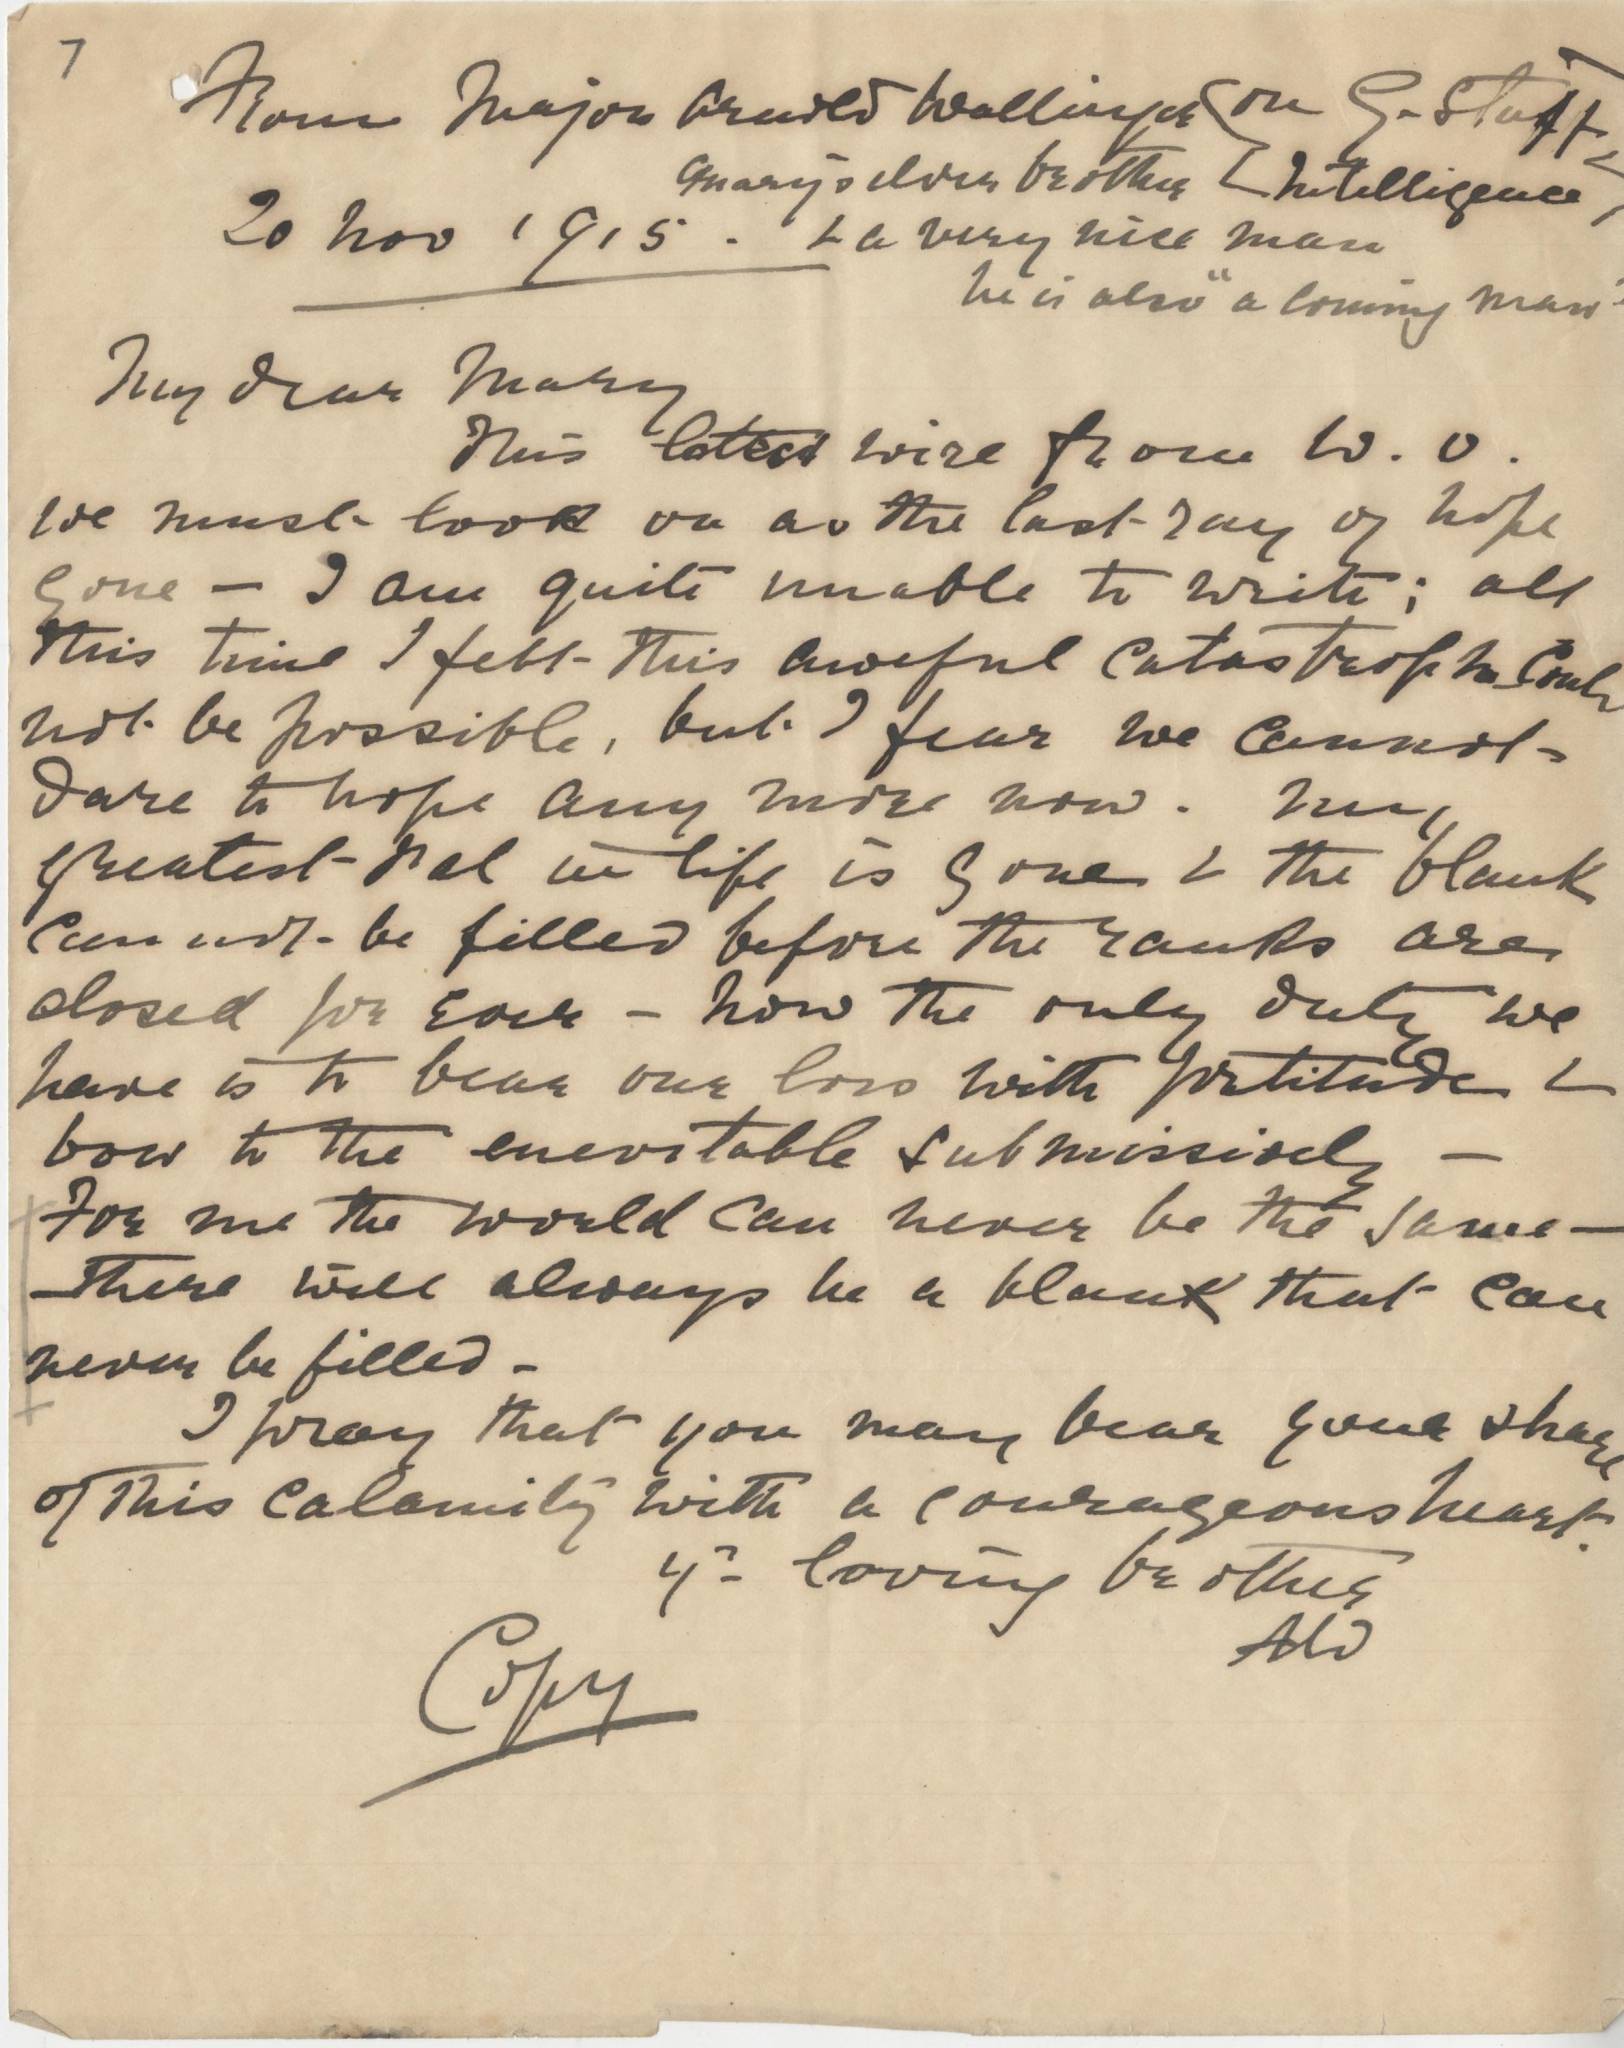 7
From Major Arnold Wallinger (on G-Staff
Mary's elder brother Intelligence)
20 Nov 1915. & a very nice man
he is also "a coming man"
My dear Mary
This latest wire from W.O.
we must look on as the last ray of hope
gone - I am quite unable to write; all
this time I felt this aweful catastrophe could
not be possible, but I fear we cannot
dare to hope any more now. My
greatest Pal in life is gone & the blank
cannot be filled before the ranks are
closed for ever - Now the only duty we
have is to bear our loss with fortitude &
bow to the enevitable submissively -
For me the world can never be the same -
- There will always be a blank that can
never be filled -
I pray that you may bear your share
of this calamity with a courageous heart.
yr loving brother
Copy